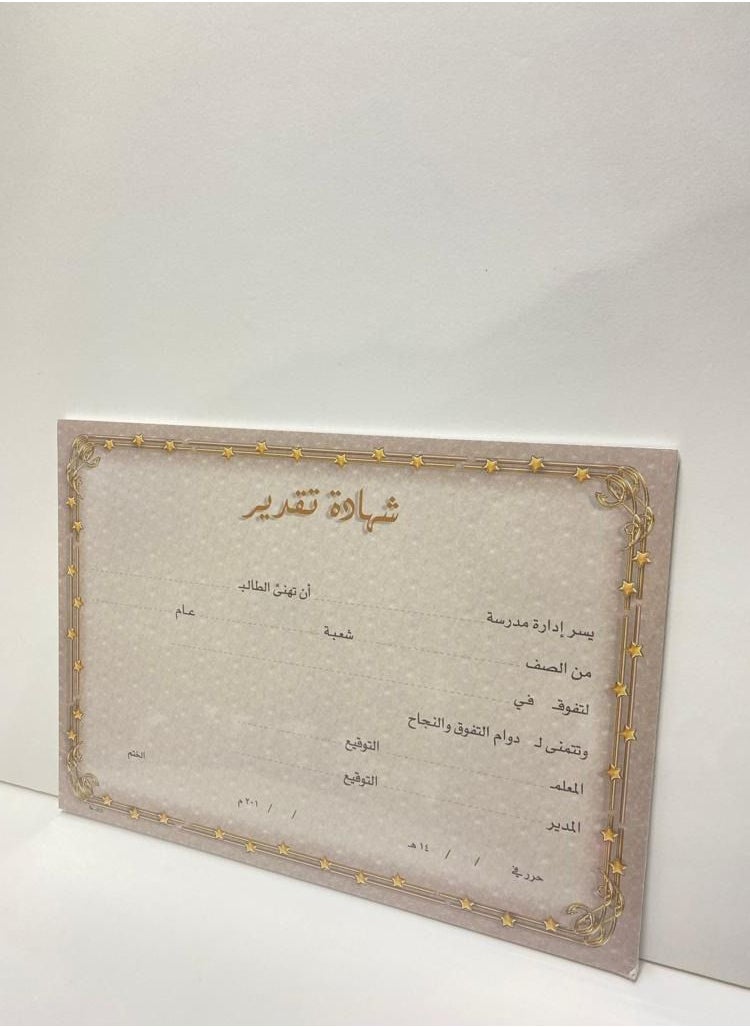 شهادة تقدير
يسر إدارة مدرسة أن تهنئ الطالبـ
من الصف شعبة عام
لتفوقـ في
وتتمنى لـ دوام التفوق والنجاح
المعلمـ التوقيع
المدير التوقيع الختم
حرر في / / ١٤ هـ / / ٢٠١ م